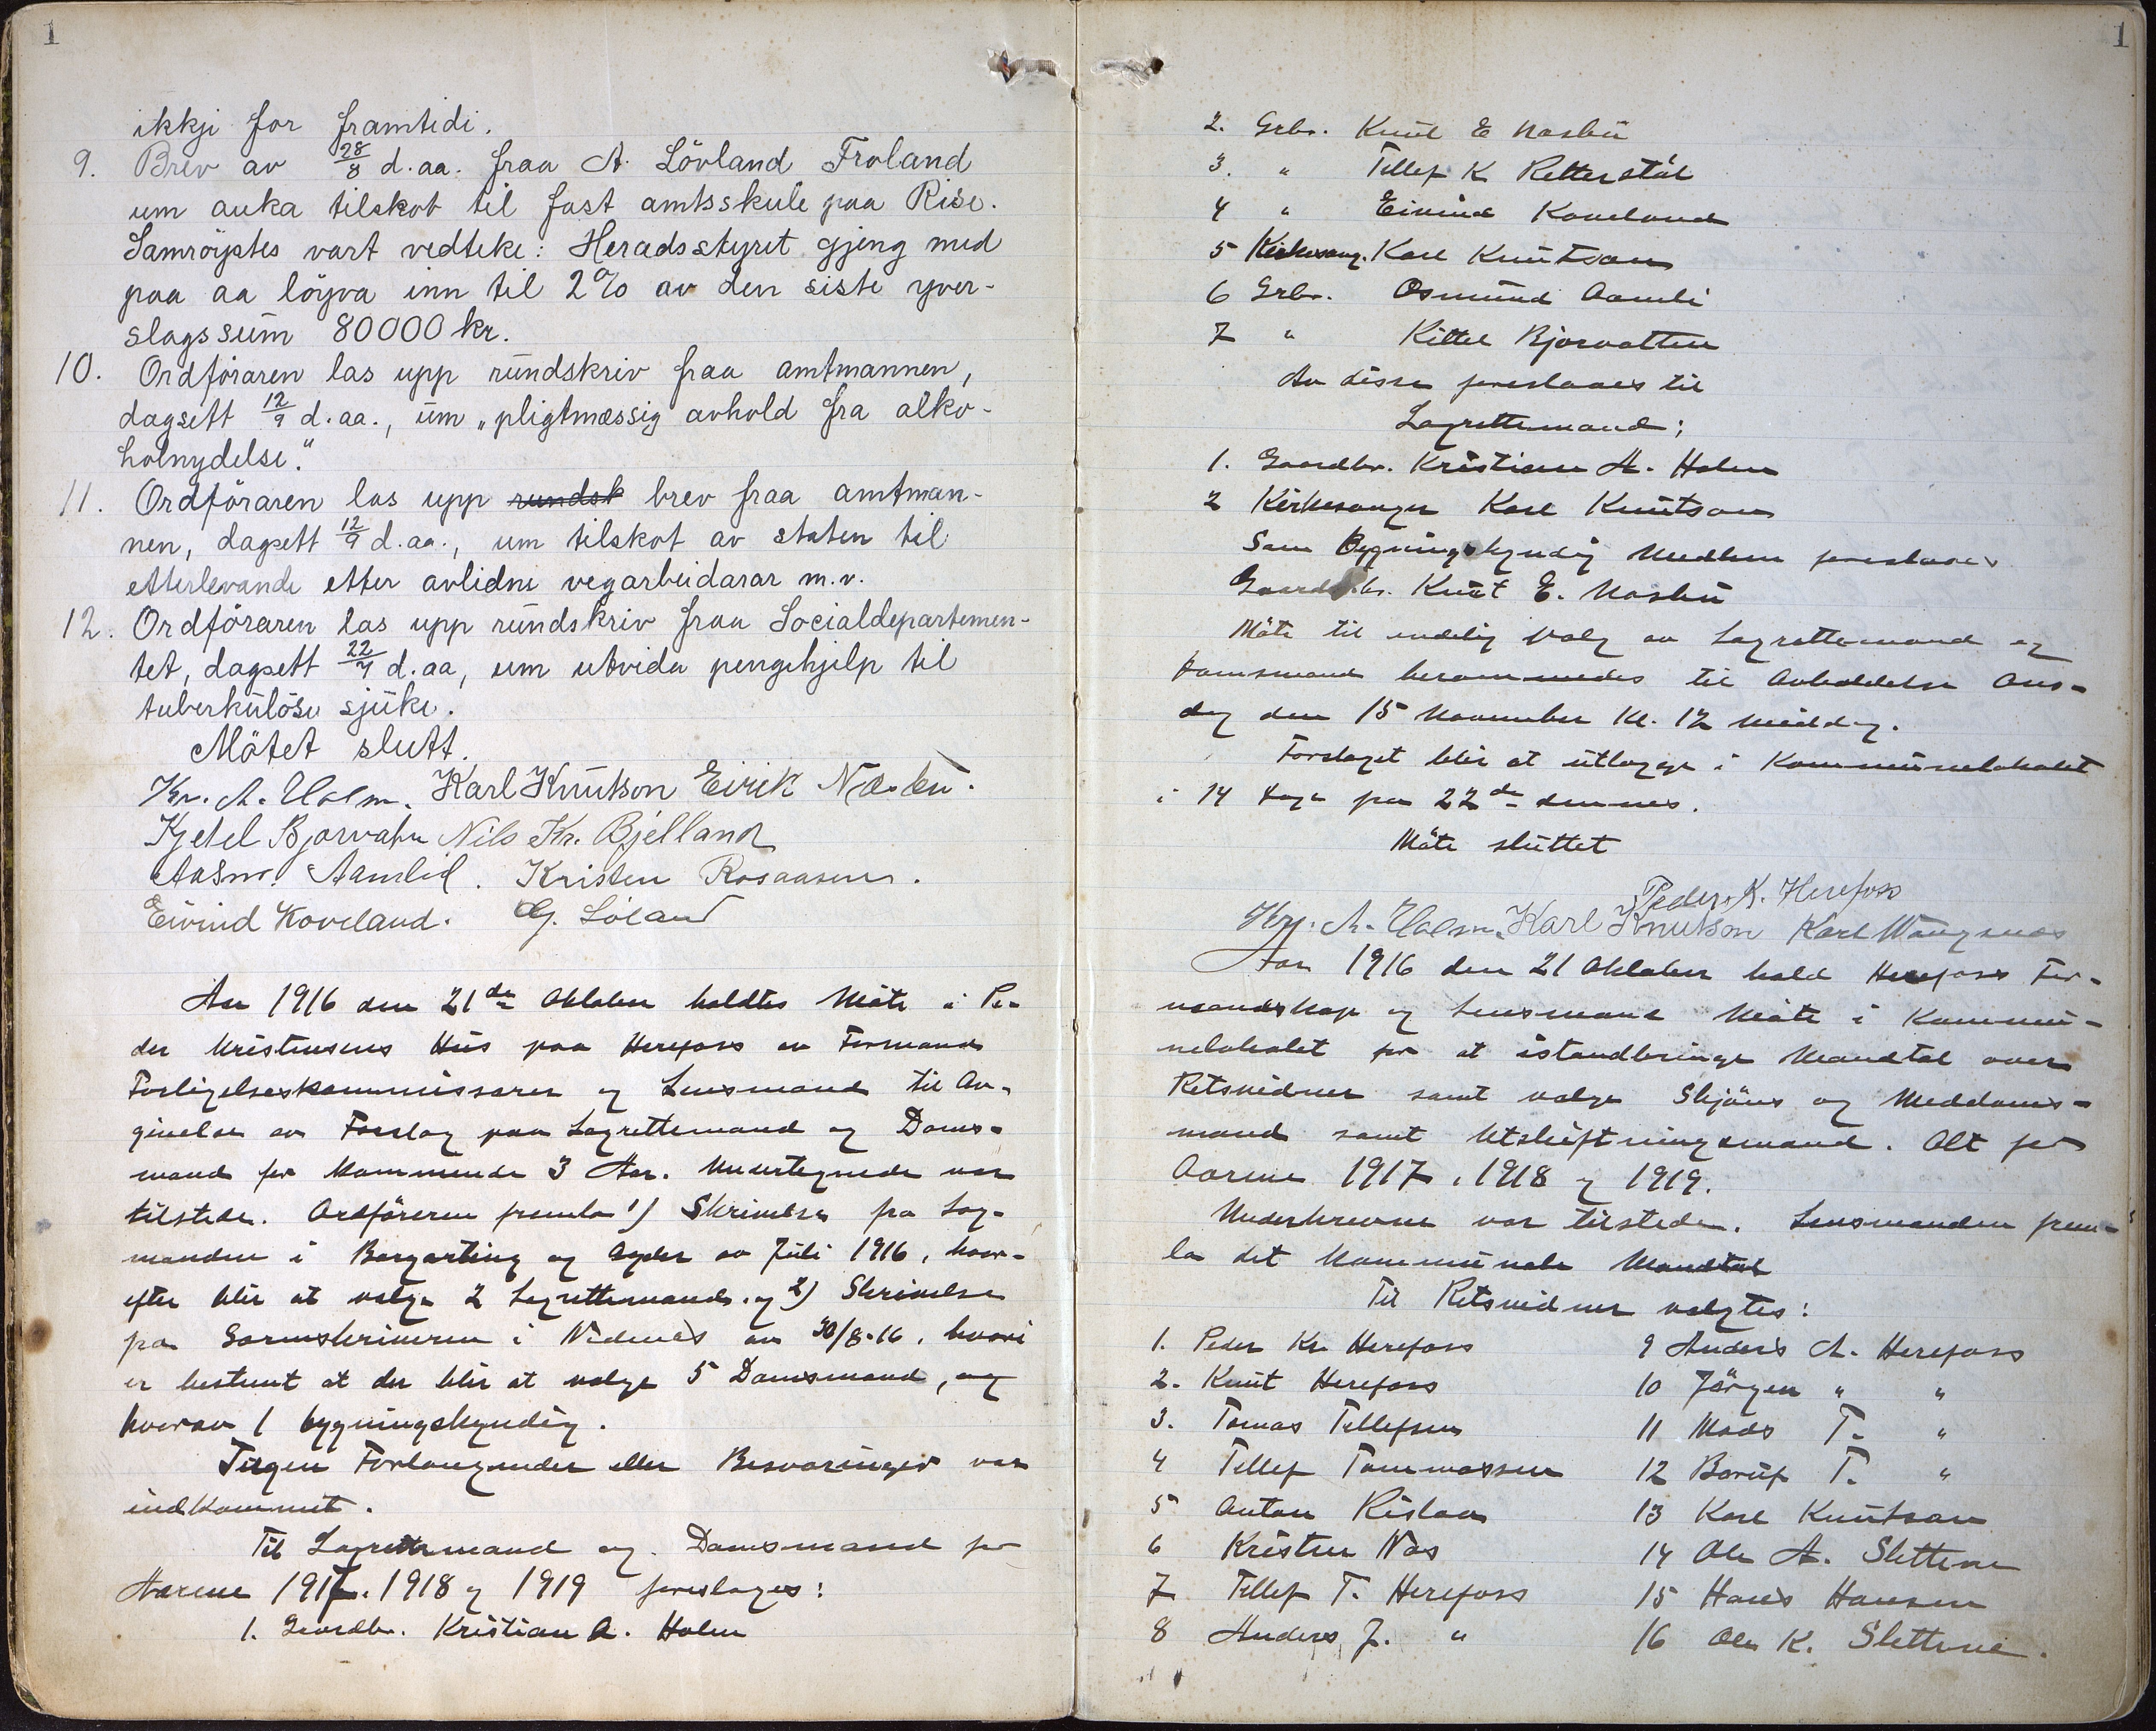 1
ikkje for framtidi.
9. Brev av 28/8 d.aa. fraa A. Lövland Froland
um auka tilskot til fast amtsskule paa Rise.
Samröystes vart vedteke: Heradsstyret gjeng med
paa aa löyva inn til 2% av den siste yver-
slagssum 80000 kr.
10. Ordföraren las upp rundskriv fraa amtmannen,
dagsett 12/9 d.aa., um „pligtmæssig avhold fra alko-
holnydelse."
11. Ordföraren las upp rundsk brev fraa amtman-
nen, dagsett 12/9 d.aa., um tilskot av staten til
etterlevande etter avlidne vegarbeidarar m.v.
12. Ordföraren las upp rundskriv fraa Socialdepartemen-
tet, dagsett d.aa, um utvida pengehjelp til
tuberkulöse sjuke.
Mötet slutt.
Kr. A. Holm. Karl Knutson Eirik
Kjetel Bjorvatn Nils Kr. Bjelland
Aasm. Aamlid. Kristen Rosaasen.
Eivind Koveland. G. Löland
Aar 1916 den 21de Oktober holdtes Möte i Pe-
der Kristensens Hus paa Herefoss av Formænd
Forligelseskommissærer og Lensmand til Av-
givelse av Forslag paa Lagrettemænd og Doms-
mænd for kommende 3 Aar. Undertegnede var
tilstede. Ordföreren fremla 1) Skrivelse fra Lag-
manden i Borgarting og Agder av Juli 1916, hvor-
efter blir at vælge 2 Lagrettemænd. og 2) Skrivelse
fra Sorenskriveren i Nedenes av 30/8-16, hvori
er bestemt at der blir at vælge 5 Domsmænd, og
hverav 1 bygningskyndig.
Ingen Forlangender eller Besværinger var
indkommet.
Til Lagrettemænd og Domsmænd for
Aarene 1917. 1918 og 1919 foreslages:
1. Gaardbr. Kristian A. Holm
1
2. Grbr. Knut E Næsbü
3. " Tellef K Retterstöl
4 " Eivind Koveland
5 Kirkesang. Karl Knutson
6 Grbr. Osmund Aamli
7 " Kittel Bjorvatten
Av disse foreslaaes til
Lagrettemænd:
1. Gaardbr. Kristian A. Holm
2 Kirkesanger Karl Knutson
Som Bygningskyndig Medlem foreslaaes
Gaardbr. Knut E. Næsbü
Möte til endelig Valg av Lagrettemænd og
Domsmænd berammedes til Avholdelse Ons-
dag den 15 November Kl. 12 Middag.
Forslaget blir at utlægge i Kommunelokalet
i 14 Dage fra 22de dennes.
Möte sluttet
Peder K. Herefoss
Kr. A. Holm. Karl Knutson Karl Wangsnæs
Aar 1916 den 21 Oktober holdt Herefoss For-
mandskap og Lensmand Möte i Kommu-
nelokalet for at istandbringe Mandtal over
Retsvidner samt vælge Skjöns og Meddoms-
mænd samt Utskiftningsmænd. Alt for
Aarene 1917, 1918 og 1919.
Underskrevne var tilstede. Lensmanden frem-
la det kommunale Mandtal
Til Retsvidner valgtes:
1. Peder Kr. Herefoss
2. Knut Herefoss
3. Tomas Tellefsen
4 Tellef Tommassen
5 Anton Rislaa
6 Kristen Næs
7 Tellef T. Herefoss
8 Anders J. "
9 Anders A. Herefoss
10 Jörgen " "
11 Mads T. "
12 Borüf T. "
13 Karl Knutson
14 Ole A. Slettene
15 Hans Hansen
16 Ole K. Slettene.